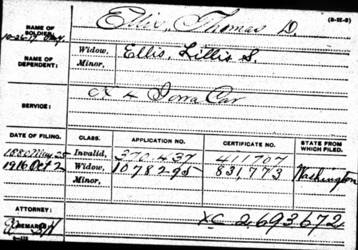 NAME OF SOLDIER: Ellis, Thomas D.
(3-111-b)
NAME OF DEPENDENT: Widow, Ellis, Lillis S.
Minor,
SERVICE: A 4 Iowa Cav
DATE OF FILING. CLASS. APPLICATION NO. CERTIFICATE NO. STATE FROM WHICH FILED.
1880 May 25 Invalid, 370.437 411707
1916 Oct 2 Widow, 1078295 831,773 Washington
Minor,
ATTORNEY:
REMARKS: XC 2,693,672